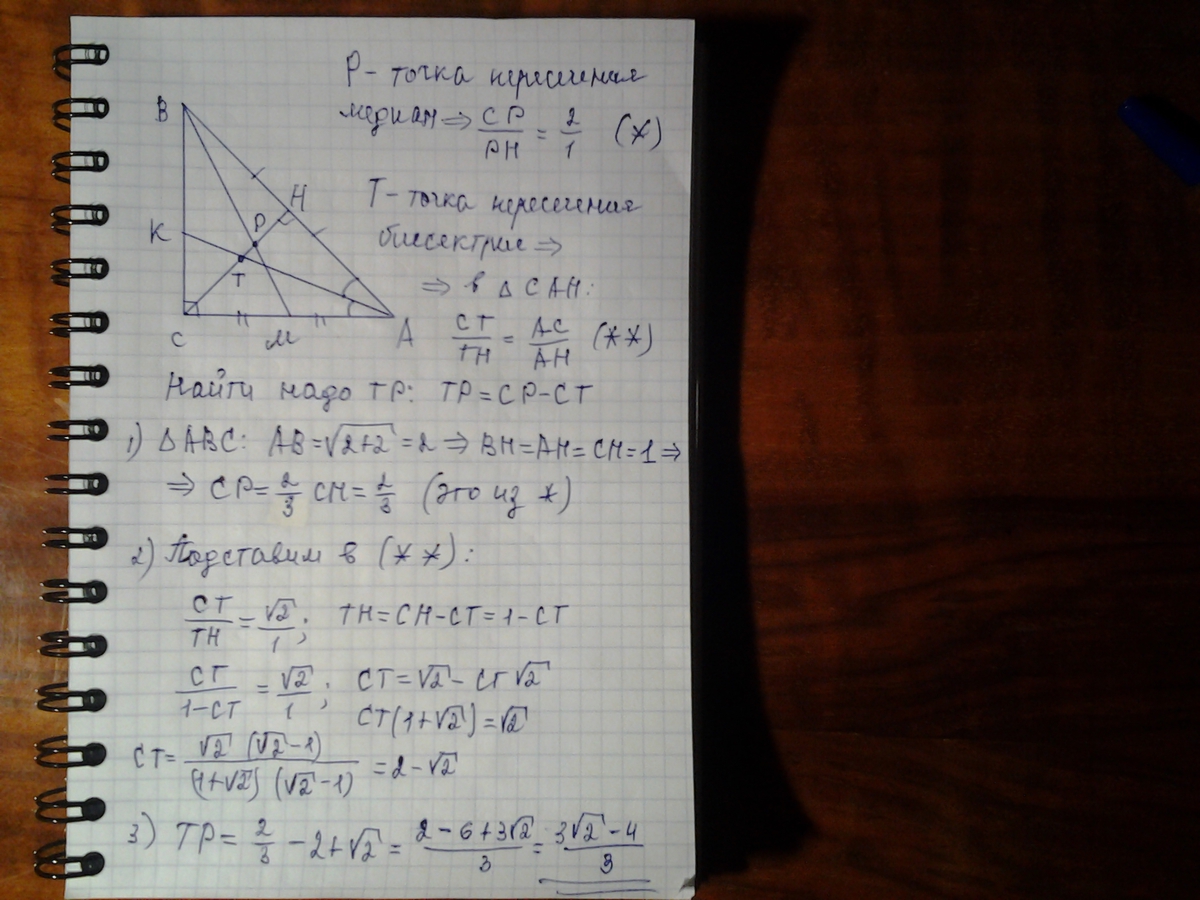 P - точка пересечения
медиан ⇒ CP/PH = 2/1 (*)
T - точка пересечения
биссектрис ⇒
⇒ в △ CAH:
CT/TH = AC/AH (**)
B
H
P
K
T
C
M
A
Найти надо TP: TP = CP - CT
1) △ABC: AB = √(2+2) = 2 ⇒ BH = AH = CH = 1 ⇒
⇒ CP = 2/3 CH = 2/3 (это из *)
2) Подставим в (**):
CT/TH = √2/1; TH = CH - CT = 1 - CT
CT/(1-CT) = √2/1; CT = √2 - CT√2
CT(1+√2) = √2
CT = √2 (√2-1)/((1+√2) (√2-1)) = 2 - √2
3) TP = 2/3 - 2 + √2 = (2 - 6 + 3√2)/3 = (3√2 - 4)/3